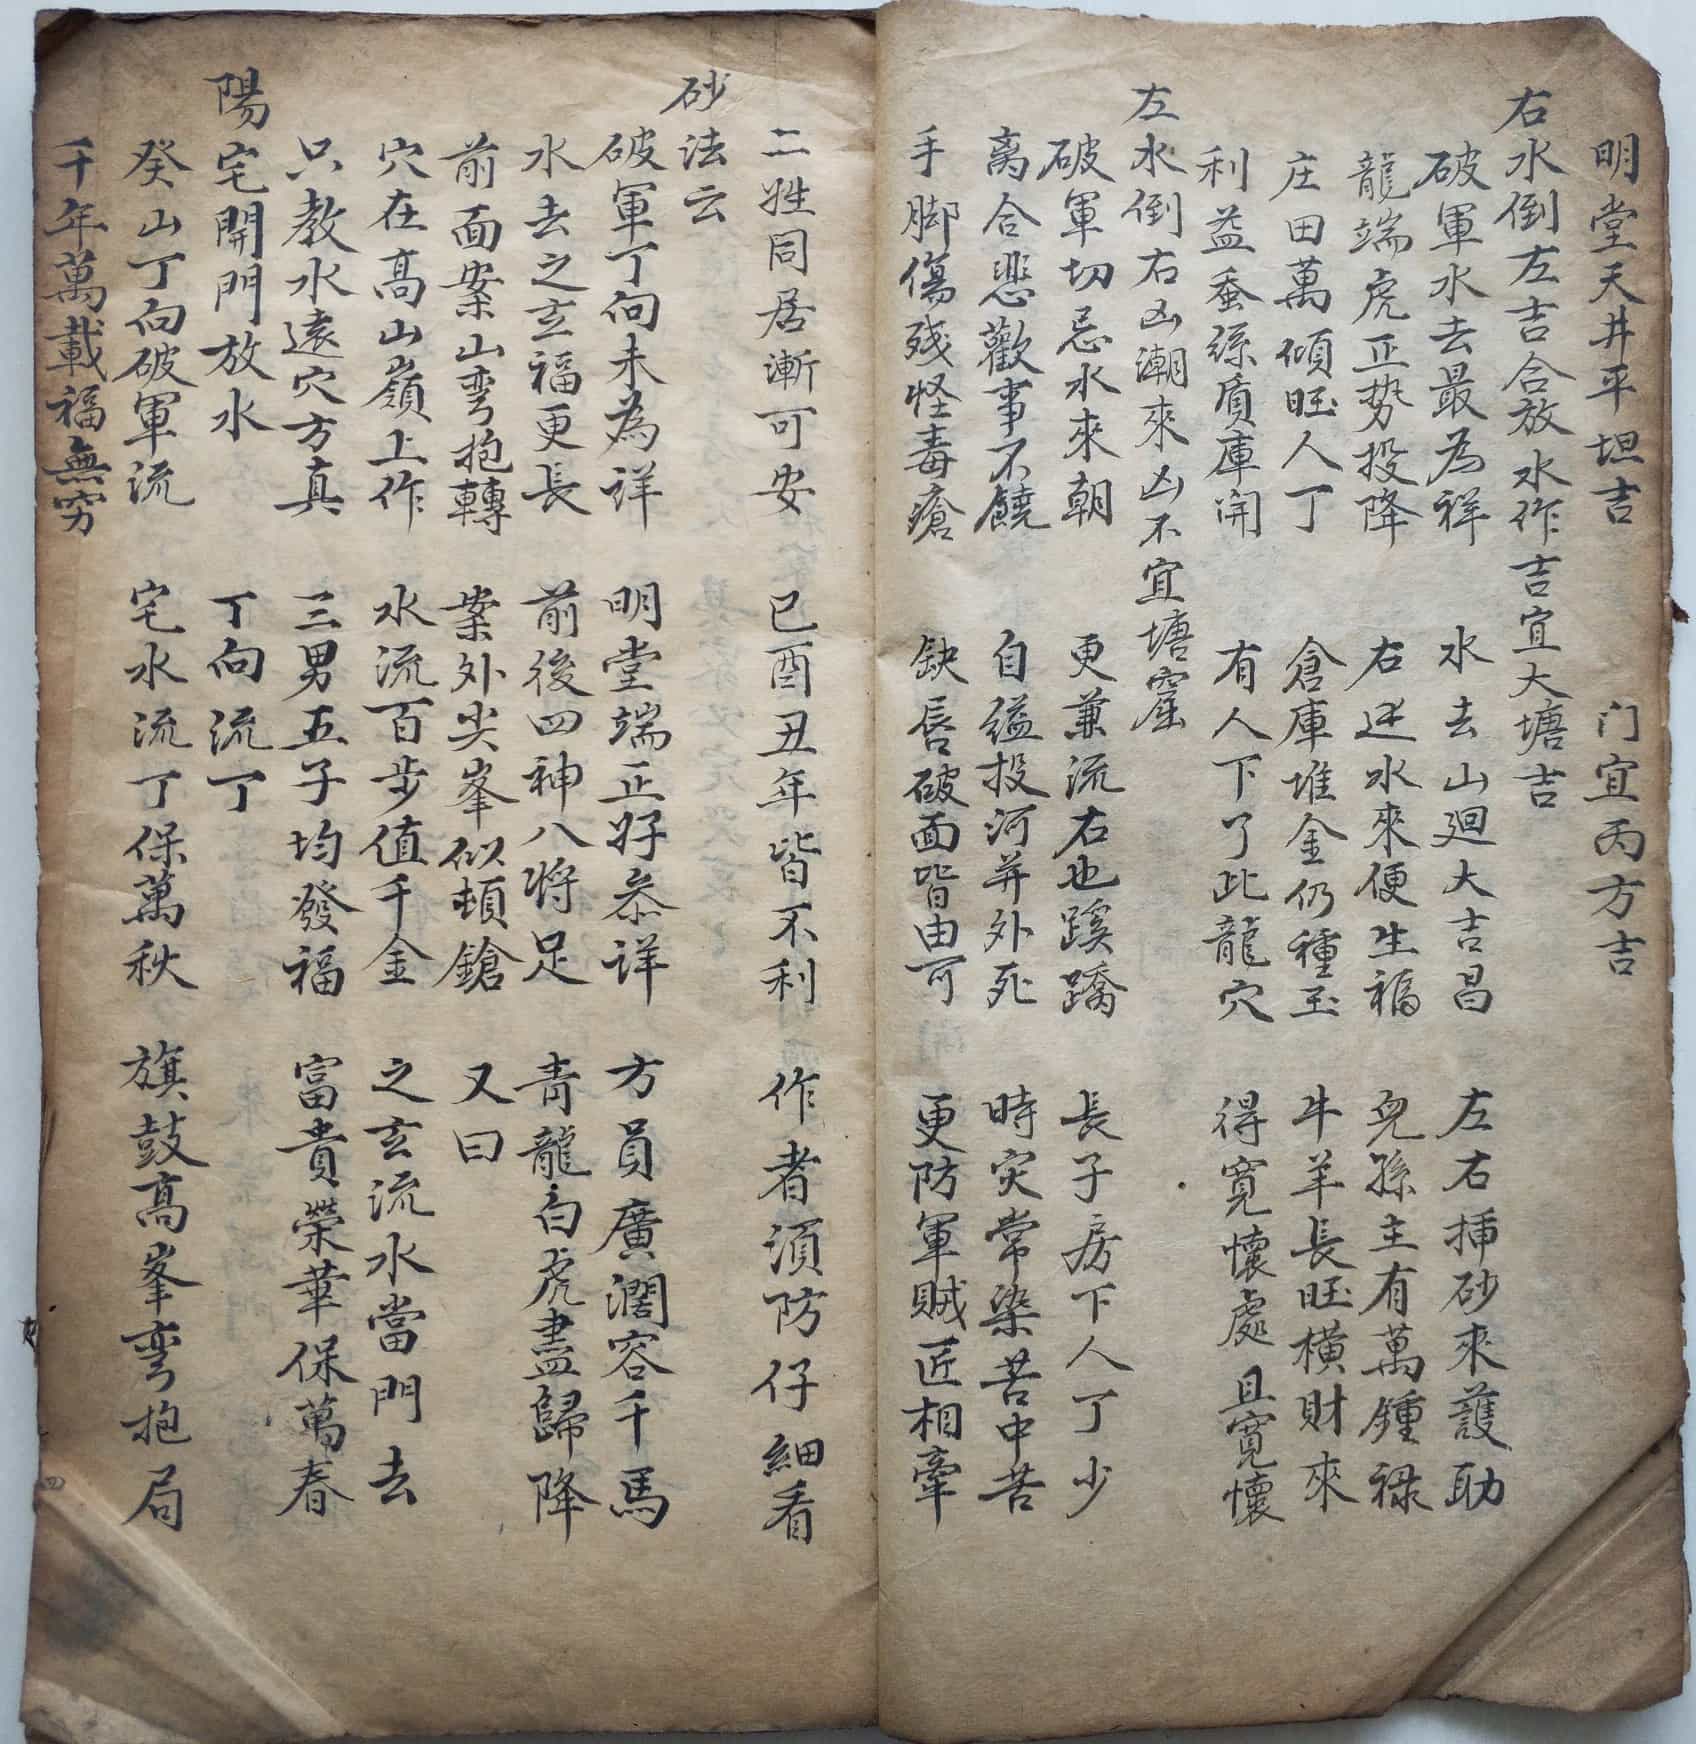 明堂天井平坦吉　门宜丙方吉
右水倒左吉合放水作吉宜大塘吉
破軍水去最为祥　水去山廻大吉昌　左右挿砂來護助
龍端虎正势投降　右逆水來便生福　兒孫主有萬鍾禄
庄田萬傾旺人丁　倉庫堆金仍種玉　牛羊長旺横財來
利益蚕絲質庫開　有人下了此龍穴　得寬懷處且寬懷
左水倒右凶潮來凶不宜塘窟
破軍切忌水來朝　更兼流右也蹊蹺　長子房下人丁少
离合悲歡事不饒　自縊投河并外死　時灾常染苦中苦
手脚傷殘怪毒瘡　缺唇破面皆由可　更防軍賊匠相牽
二姓同居漸可安　巳酉丑年皆不利　作者須防仔細看
砂法云
破軍丁向未為详　明堂端正好叅详　方員廣濶容千馬
水去之玄福更長　前後四神八将足　青龍白虎盡歸降
前面案山弯抱轉　案外尖峯似頓鎗　又曰
穴在高山嶺上作　水流百步值千金　之玄流水當門去
只教水遠穴方真　三男五子均發福　富貴榮華保萬春
陽宅開門放水　丁向流丁
癸山丁向破軍流　宅水流丁保萬秋　旗鼓高峯弯抱局
千年萬載福無穷